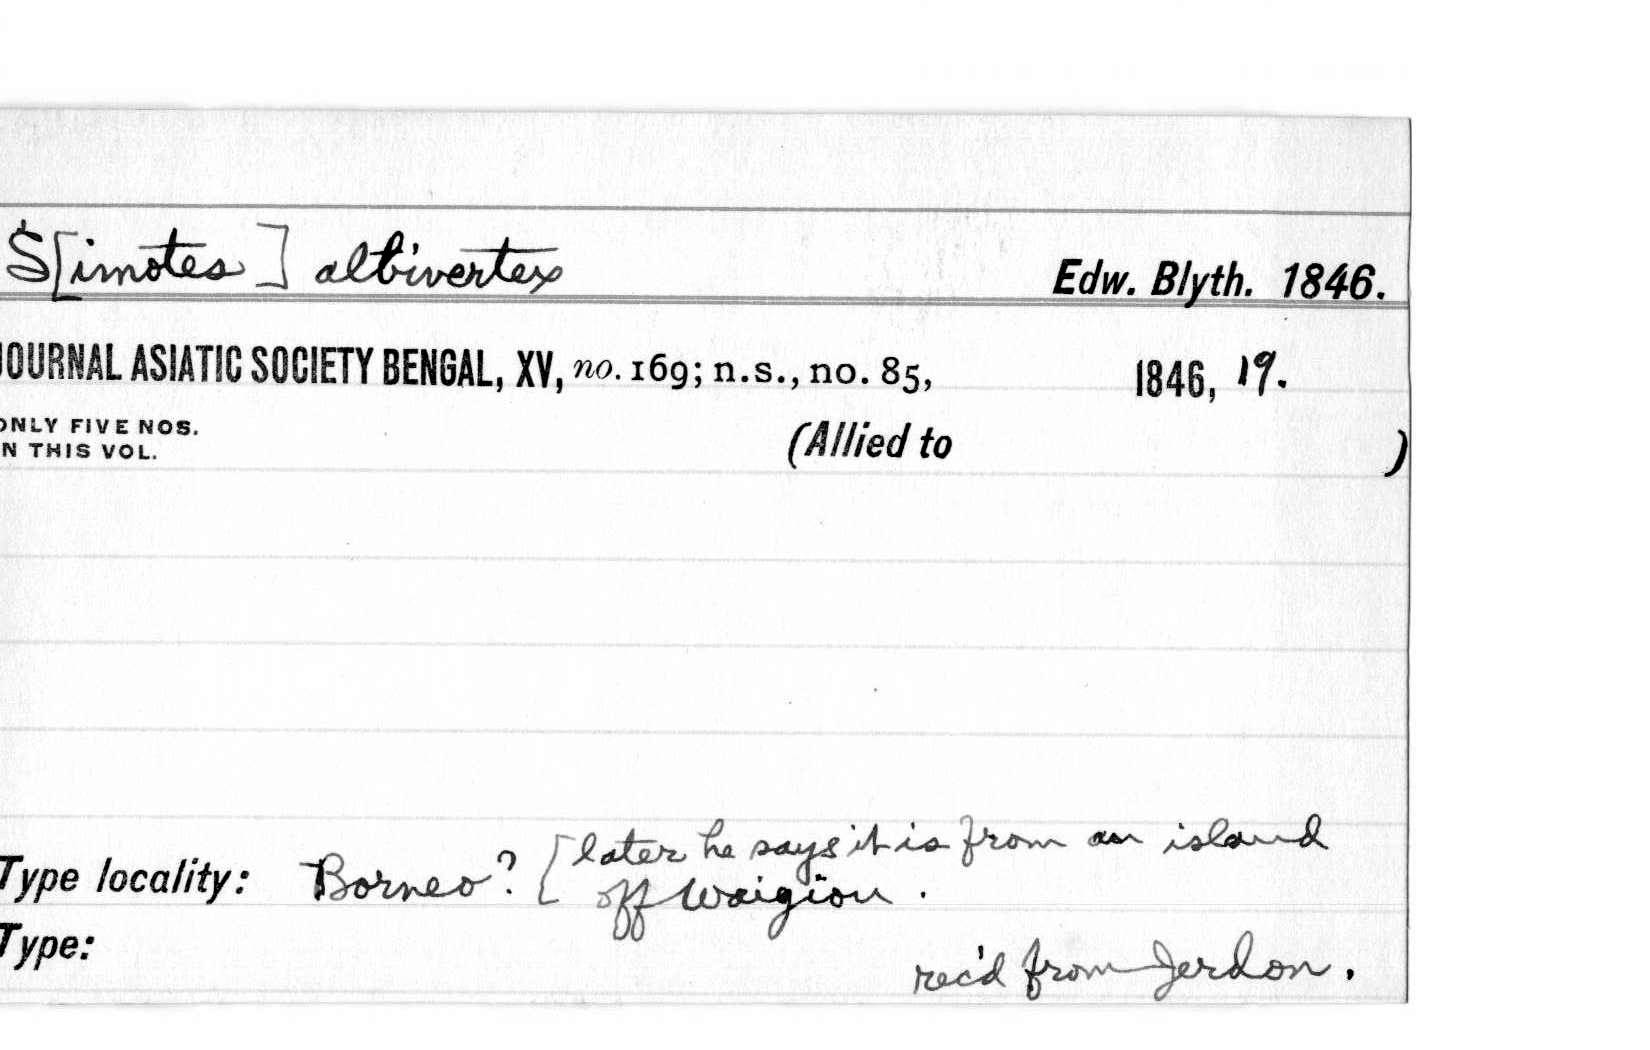 S[imotes] albivertex
Edw. Blyth. 1846.
JOURNAL ASIATIC SOCIETY BENGAL, XV, no. 169; n.s., no. 85, 1846, 19.
ONLY FIVE NOS.
IN THIS VOL.
(Allied to )
Type locality: Borneo? [later he says it is from an island
off Waigiou.
Type:
rec'd from Jerdon.